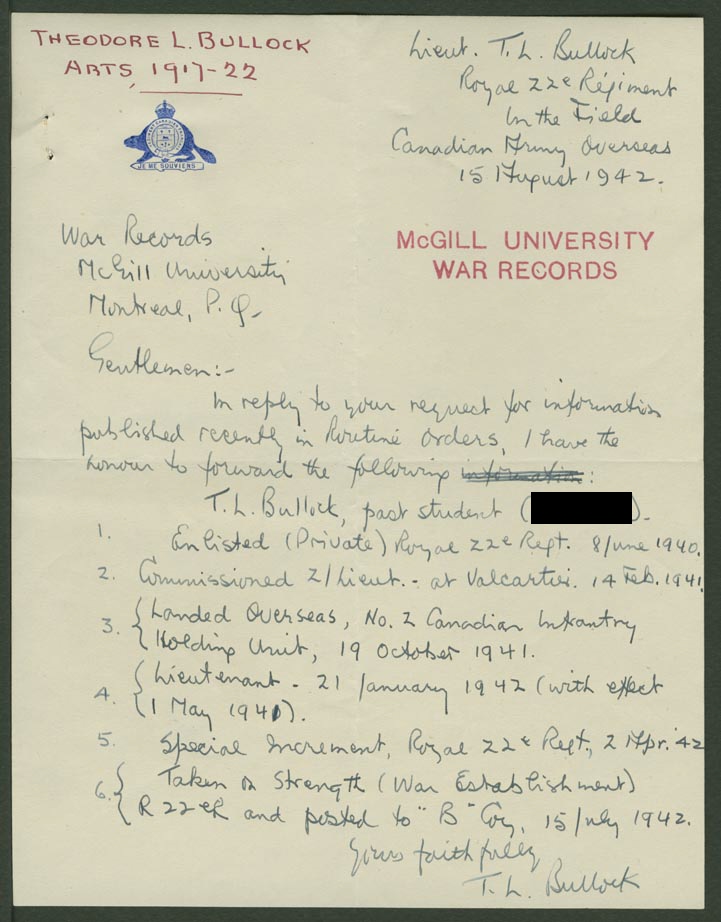 THEODORE L. BULLOCK
ARTS, 1917-22
JE ME SOUVIENS
Lieut. T. L. Bullock
Royal 22e Régiment
In the Field
Canadian Army Overseas
15 August 1942.
War Records
McGill University
Montreal, P. Q.
McGILL UNIVERSITY
WAR RECORDS
Gentlemen:-
In reply to your request for information
published recently in Routine Orders, I have the
honour to forward the following information:
T. L. Bullock, past student ( ).
1. Enlisted (Private) Royal 22e Regt. 8 June 1940.
2. Commissioned 2/Lieut. - at Valcartier. 14 Feb. 1941.
3. Landed Overseas, No. 2 Canadian Infantry
Holding Unit, 19 October 1941.
4. Lieutenant - 21 January 1942 (with effect
1 May 1941).
5. Special Increment, Royal 22e Regt., 2 Apr. '42
6. Taken on Strength (War Establishment)
R 22eR and posted to "B" Coy, 15 July 1942.
Yours faithfully
T. L. Bullock